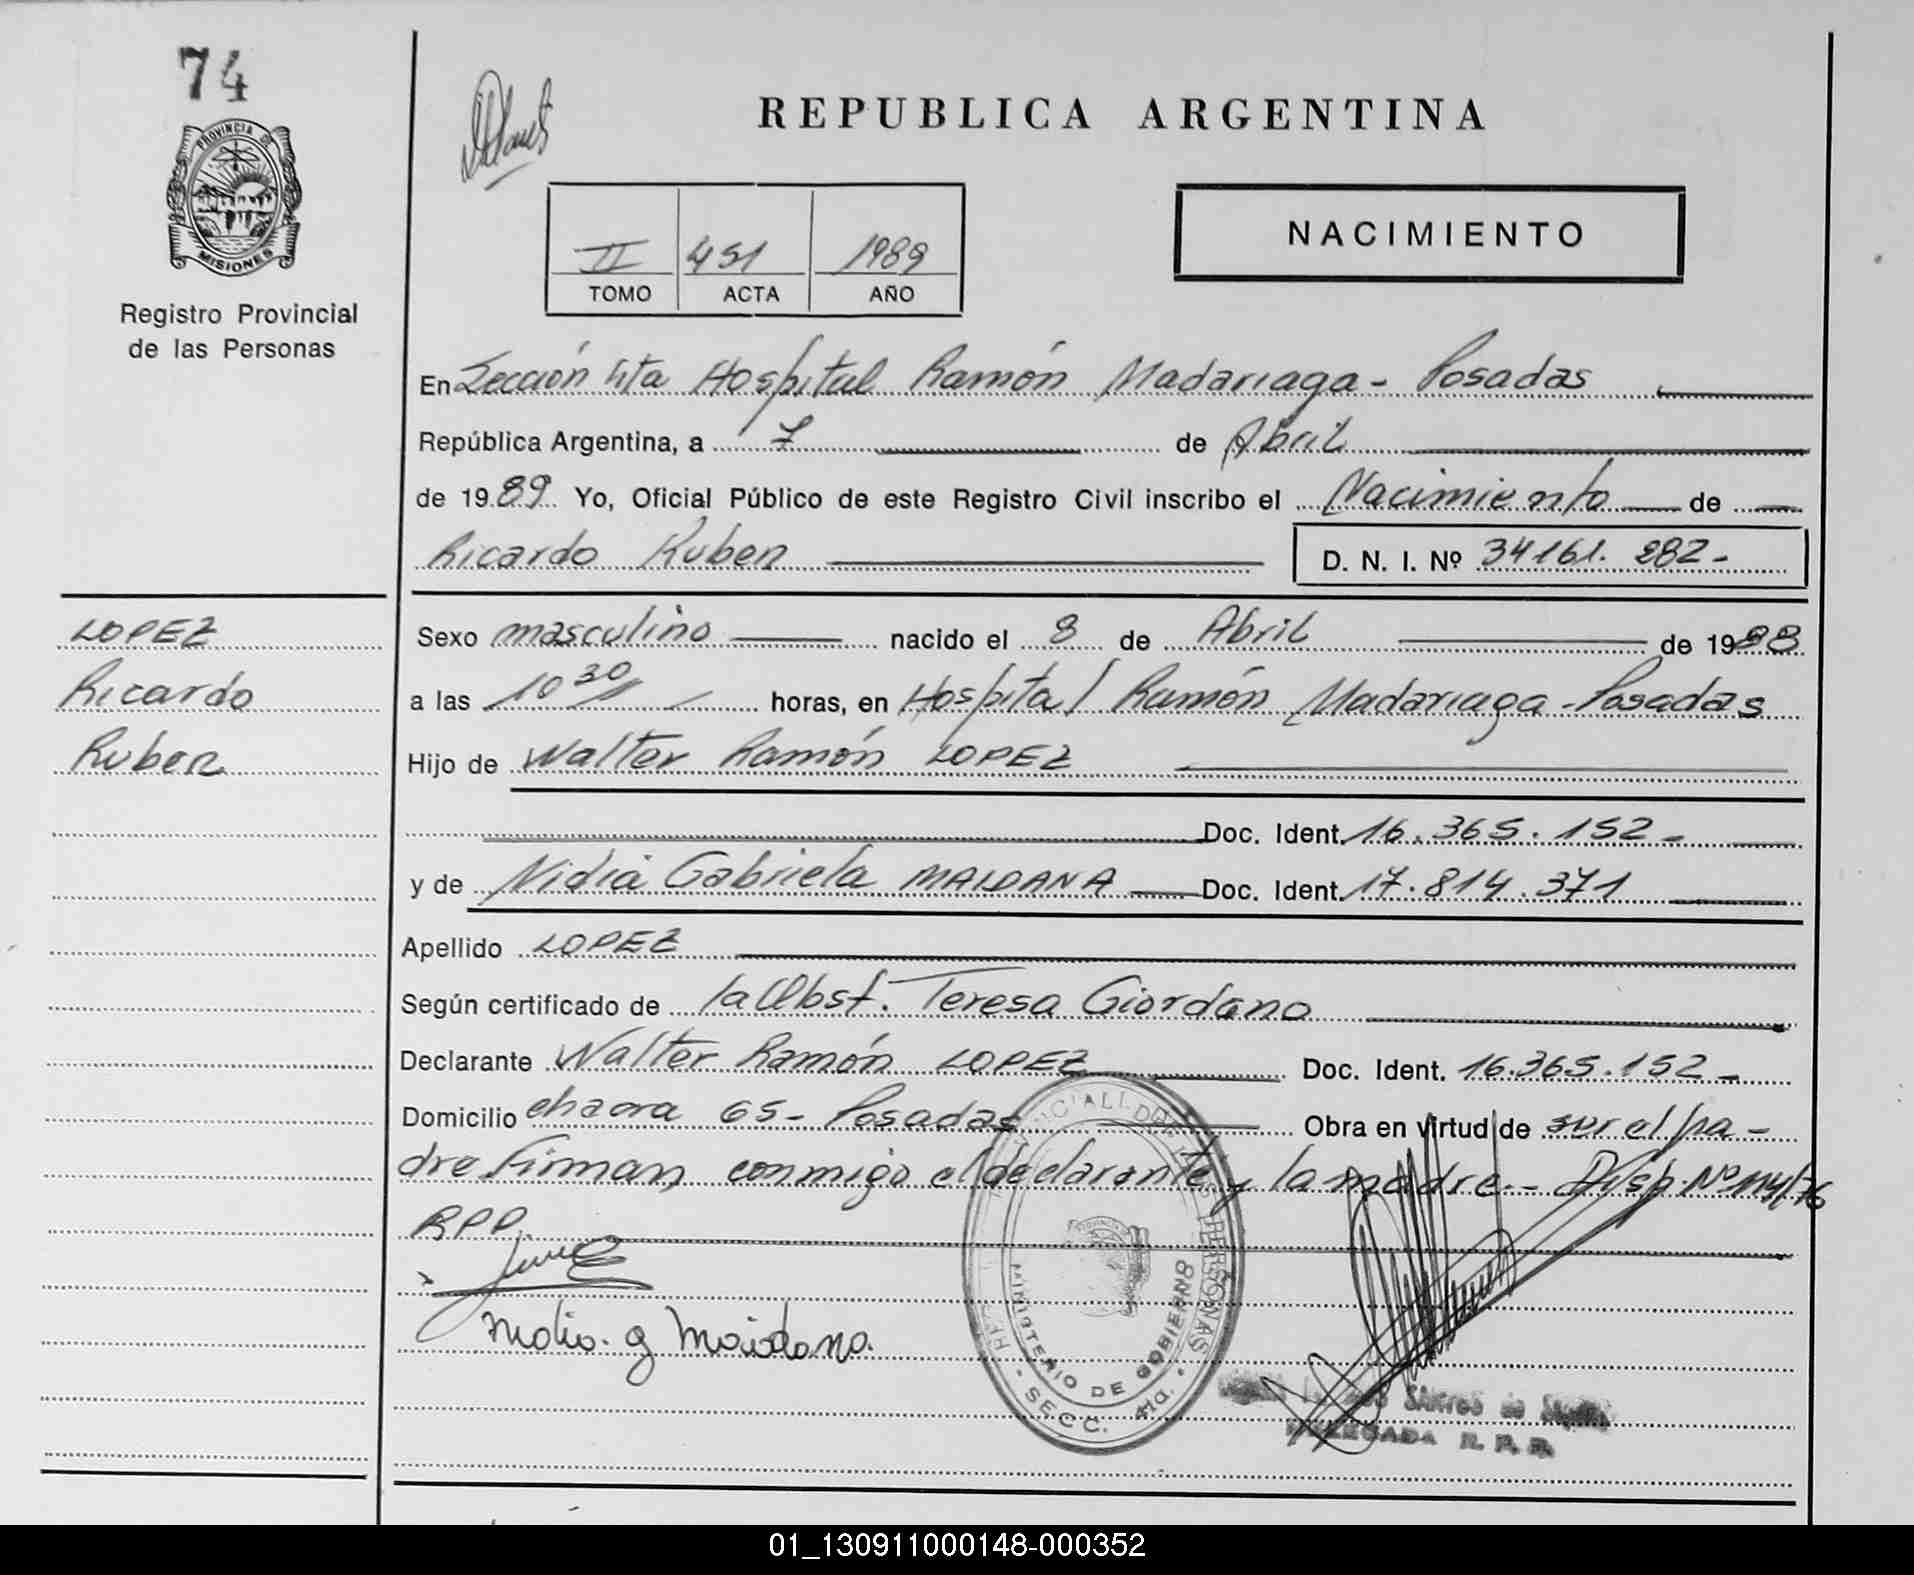 74
PROVINCIA DE
MISIONES
Registro Provincial
de las Personas
REPUBLICA ARGENTINA
II 451 1989
TOMO ACTA AÑO
NACIMIENTO
En Sección 4ta Hospital Ramón Madariaga - Posadas
República Argentina, a 7 de Abril
de 1989 Yo, Oficial Público de este Registro Civil inscribo el Nacimiento de
Ricardo Ruben D. N. I. Nº 34161.282-
LOPEZ
Ricardo
Ruben
Sexo masculino nacido el 8 de Abril de 1988
a las 10 30 horas, en Hospital Ramón Madariaga - Posadas
Hijo de Walter Ramón LOPEZ
Doc. Ident. 16.365.152-
y de Nidia Gabriela MAIDANA Doc. Ident. 17.814.371
Apellido LOPEZ
Según certificado de la Obst. Teresa Giordano
Declarante Walter Ramón LOPEZ Doc. Ident. 16.365.152-
Domicilio chacra 65- Posadas Obra en virtud de ser el pa-
dre firman conmigo el declarante y la madre - Disp. Nº 114/76
RPP
MINISTERIO DE GOBIERNO
SECC. 4ta.
SANTOS de
DELEGADA R. P. P.
01_130911000148-000352